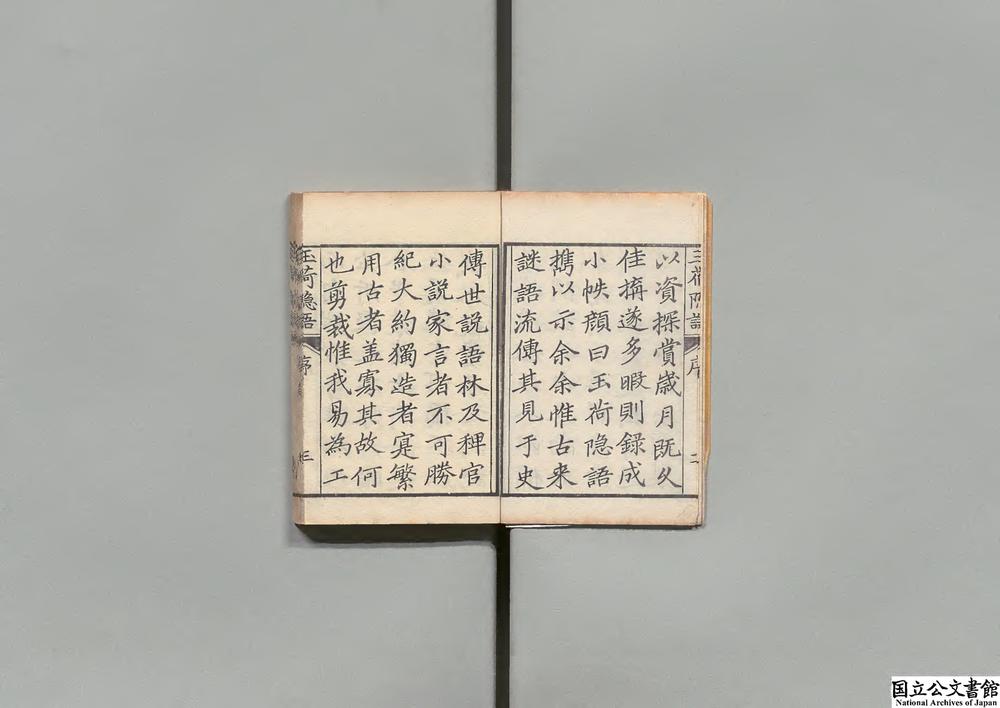 玉荷隠語
序
二
以資探賞歳月既久
佳搆遂多暇則録成
小帙顔曰玉荷隠語
携以示余余惟古来
謎語流傳其見于史
傳世説語林及稗官
小説家言者不可勝
紀大約獨造者寔繁
用古者盖寡其故何
也剪裁惟我易為工
玉荷隠語
序
三
国立公文書館
National Archives of Japan